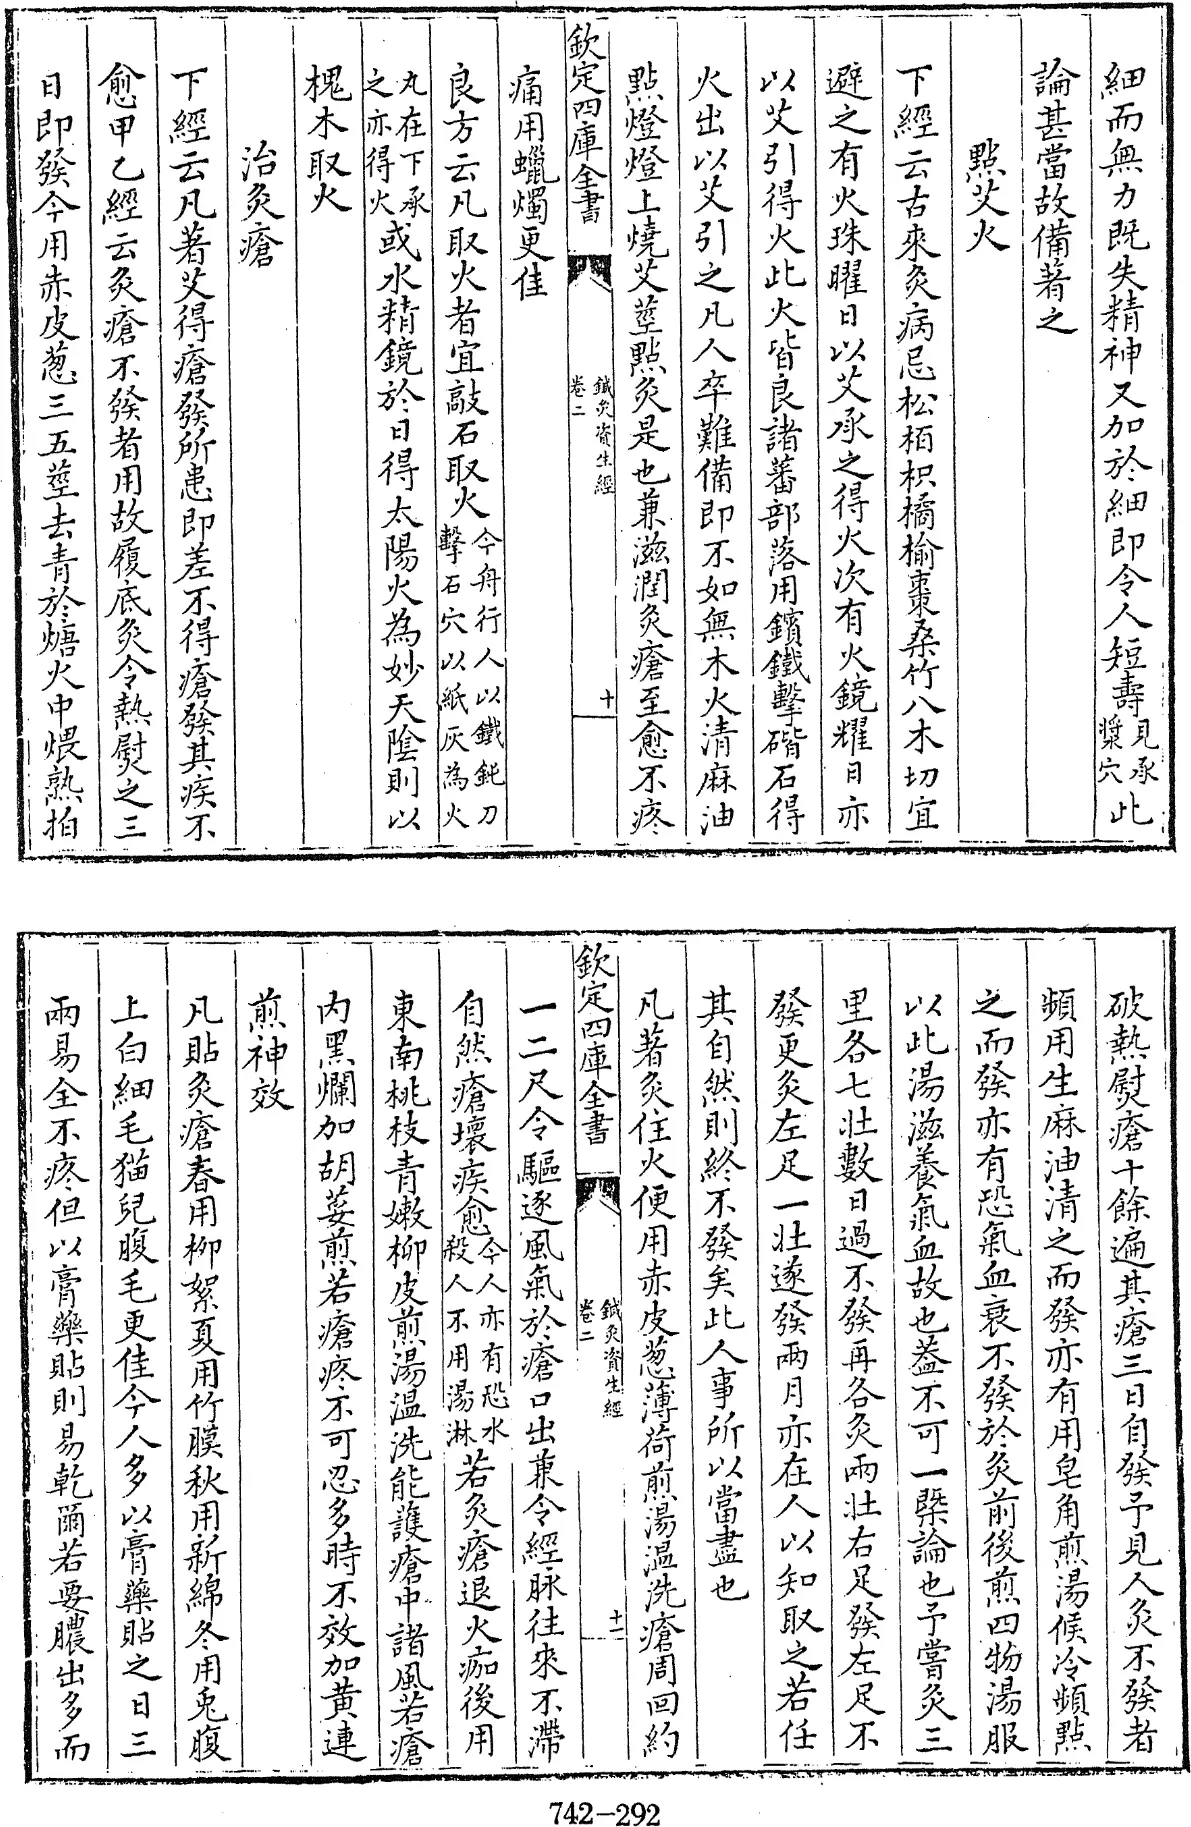 細而無力既失精神又加於細即令人短壽見承漿穴此
論甚當故備著之
點艾火
下經云古來灸病忌松栢枳橘榆棗桑竹八木切宜
避之有火珠曜日以艾承之得火次有火鏡耀日亦
以艾引得火此火皆良諸蕃部落用鑌鐵擊磆石得
火出以艾引之凡人卒難備即不如無木火清麻油
點燈燈上燒艾莖點灸是也兼滋潤灸瘡至愈不疼
欽定四庫全書
鍼灸資生經
卷二
十
痛用蠟燭更佳
良方云凡取火者宜敲石取火今舟行人以鐵鈍刀擊石穴以紙灰為火
丸在下承之亦得火或水精鏡於日得太陽火為妙天陰則以
槐木取火
治灸瘡
下經云凡著艾得瘡發所患即差不得瘡發其疾不
愈甲乙經云灸瘡不發者用故履底灸令熱熨之三
日即發今用赤皮葱三五莖去青於煻火中煨熟拍
破熱熨瘡十餘遍其瘡三日自發予見人灸不發者
頻用生麻油清之而發亦有用皂角煎湯候冷頻點
之而發亦有恐氣血衰不發於灸前後煎四物湯服
以此湯滋養氣血故也蓋不可一槩論也予嘗灸三
里各七壯數日過不發再各灸兩壯右足發左足不
發更灸左足一壯遂發兩月亦在人以知取之若任
其自然則終不發矣此人事所以當盡也
凡著灸住火便用赤皮葱薄荷煎湯温洗瘡周回約
欽定四庫全書
鍼灸資生經
卷二
十一
一二尺令驅逐風氣於瘡口出兼令經脉往來不滯
自然瘡壞疾愈今人亦有恐水殺人不用湯淋若灸瘡退火痂後用
東南桃枝青嫩柳皮煎湯温洗能護瘡中諸風若瘡
内黑爛加胡荽煎若瘡疼不可忍多時不效加黄連
煎神效
凡貼灸瘡春用柳絮夏用竹膜秋用新綿冬用兎腹
上白細毛猫兒腹毛更佳今人多以膏藥貼之日三
兩易全不疼但以膏藥貼則易乾爾若要膿出多而
742-292